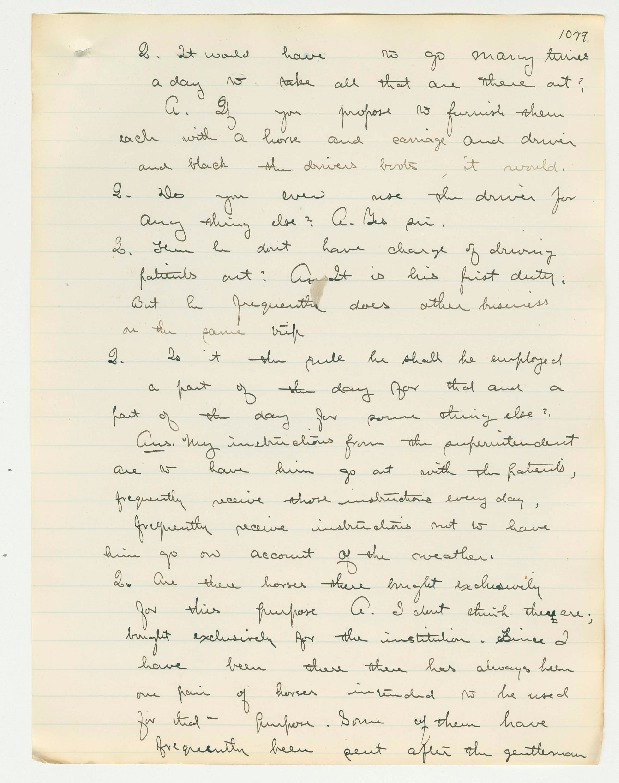 1079
Q. It would have to go many times
a day to take all that are there out?
A. If you propose to furnish them
each with a horse and carriage and driver
and black the drivers boots, it would.
Q. Do you ever use the driver for
any thing else? A. Yes sir.
Q. Then he dont have charge of driving
patients out? Ans It is his first duty.
But he frequently does other business
on the same trip
Q. Is it the rule he shall be employed
a part of the day for that and a
part of the day for some thing else?
Ans. My instructions from the superintendent
are to have him go out with the patients,
frequently receive those instructions every day,
frequently receive instructions not to have
him go on account of the weather.
Q. Are there horses there bought exclusively
for this purpose A. I dont think they are;
bought exclusively for the institution. Since I
have been there there has always been
one pair of horses intended to be used
for that purpose. Some of them have
frequently been sent after the gentleman